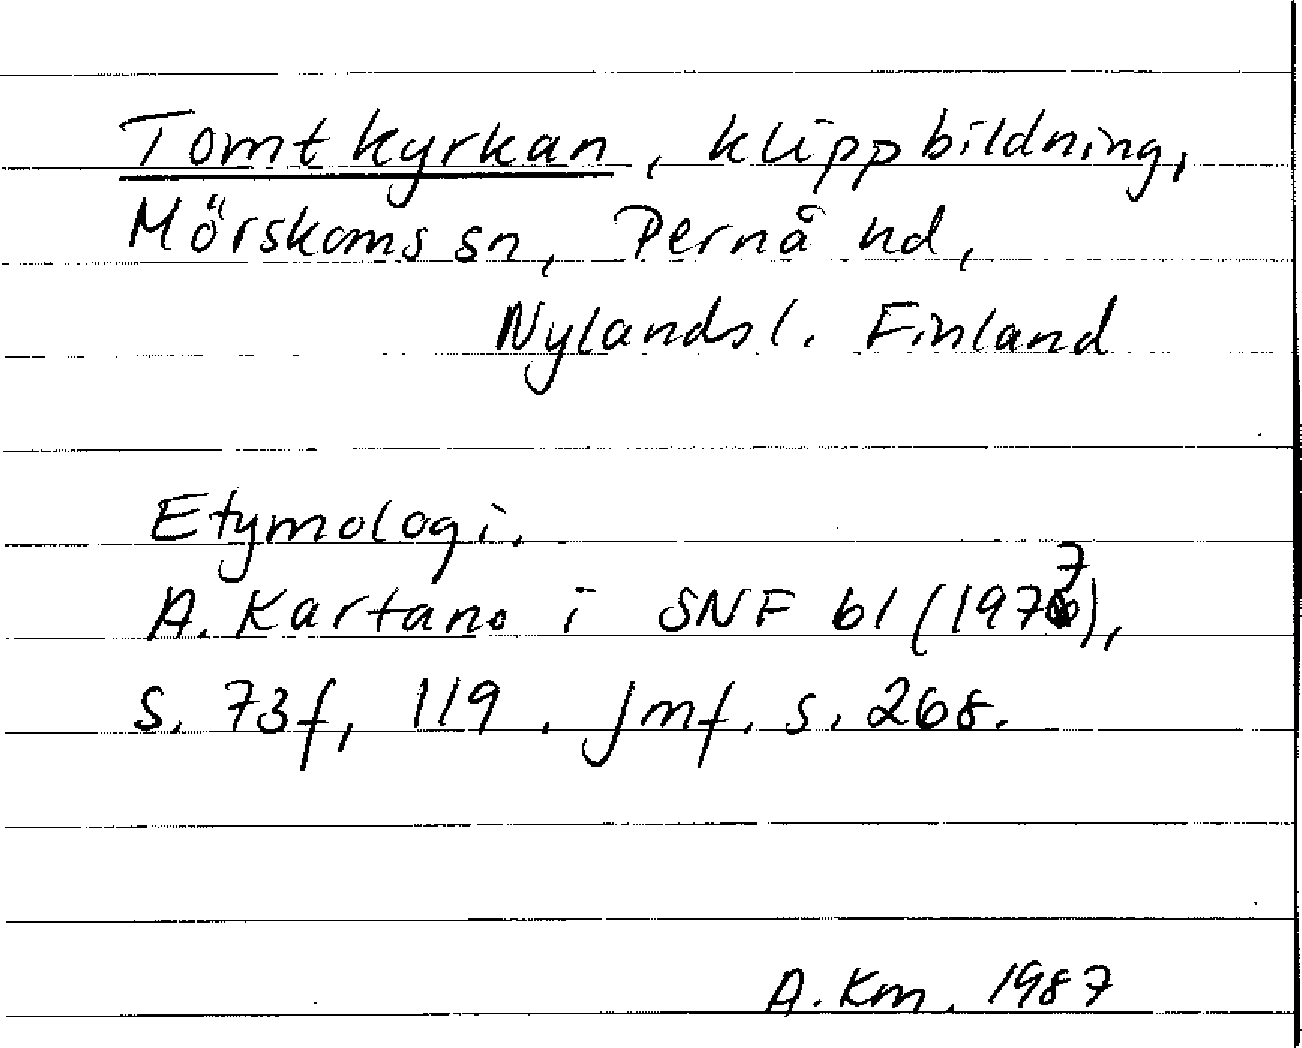 Tomtkyrkan, klippbildning,
Mörskoms sn, Pernå hd,
Nylands l. Finland
Etymologi.
A. Kartano i SNF 61 (1977),
s. 73f, 119. Jmf. s. 268.
A. Km. 1987